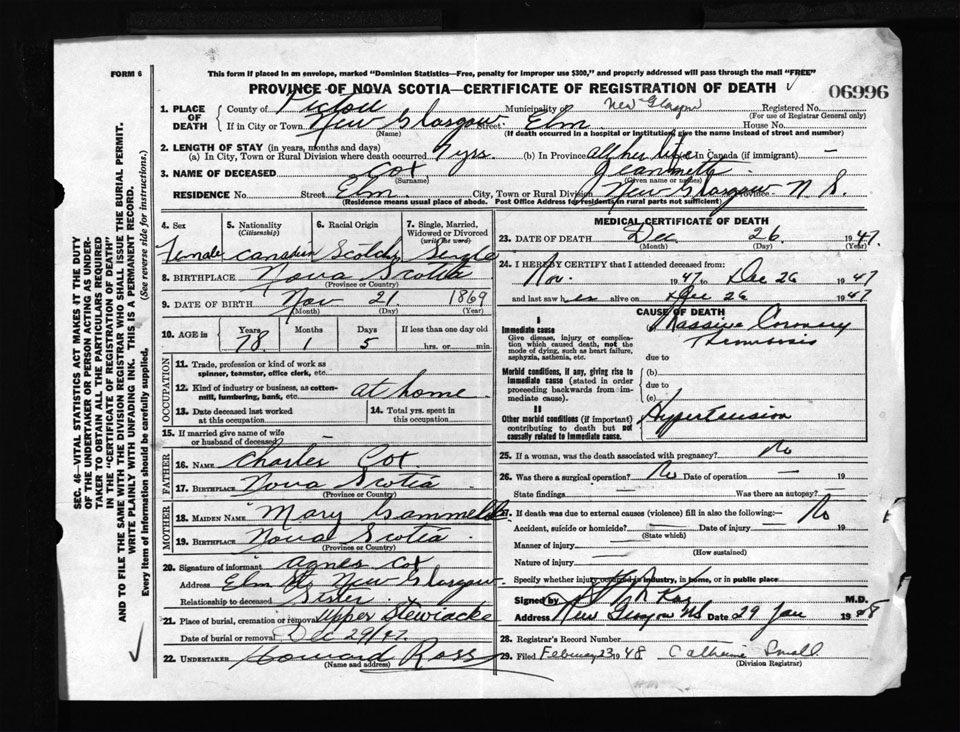 FORM 6
This form if placed in an envelope, marked "Dominion Statistics—Free, penalty for improper use $300," and properly addressed will pass through the mail "FREE"
PROVINCE OF NOVA SCOTIA—CERTIFICATE OF REGISTRATION OF DEATH
06996
1. PLACE OF DEATH
County of Pictou Municipality of New Glasgow Registered No.
(For use of Registrar General only)
If in City or Town New Glasgow Street Elm House No.
(Name) (If death occurred in a hospital or institution, give the name instead of street and number)
2. LENGTH OF STAY (in years, months and days)
(a) In City, Town or Rural Division where death occurred 9 yrs. (b) In Province all her life In Canada (if immigrant) —
3. NAME OF DECEASED Cox Jeannette
(Surname) (Given name or names)
RESIDENCE No. Street Elm City, Town or Rural Division New Glasgow Province N. S.
(Residence means usual place of abode. Post Office Address for residents in rural parts not sufficient)
4. Sex 5. Nationality (Citizenship) 6. Racial Origin 7. Single, Married, Widowed or Divorced (write the word)
Female Canadian Scotch Single
8. BIRTHPLACE Nova Scotia
(Province or Country)
9. DATE OF BIRTH Nov 21 1869
(Month) (Day) (Year)
10. AGE in Years Months Days If less than one day old
78 1 5 hrs. or min.
OCCUPATION
11. Trade, profession or kind of work as spinner, teamster, office clerk, etc.
12. Kind of industry or business, as cotton-mill, lumbering, bank, etc. at home
13. Date deceased last worked at this occupation
14. Total yrs. spent in this occupation
15. If married give name of wife or husband of deceased
FATHER
16. NAME Charles Cox
17. BIRTHPLACE Nova Scotia
(Province or Country)
MOTHER
18. MAIDEN NAME Mary
19. BIRTHPLACE Nova Scotia
(Province or Country)
20. Signature of informant Agnes Cox
Address Elm St. New Glasgow
Relationship to deceased Sister
21. Place of burial, cremation or removal Upper Stewiacke
Date of burial or removal Dec 29/47.
22. UNDERTAKER Howard Ross
(Name and address)
MEDICAL CERTIFICATE OF DEATH
23. DATE OF DEATH Dec 26 1947.
(Month) (Day) (Year)
24. I HEREBY CERTIFY that I attended deceased from:
Nov. 1947 to Dec 26 1947
and last saw her alive on Dec 26 1947
CAUSE OF DEATH
I
Immediate cause
Give disease, injury or complication which caused death, not the mode of dying, such as heart failure, asphyxia, asthenia, etc.
Massive Coronary
Thrombosis
due to
Morbid conditions, if any, giving rise to immediate cause (stated in order proceeding backwards from immediate cause).
(b)
due to
(c)
II
Other morbid conditions (if important) contributing to death but not causally related to immediate cause.
Hypertension
25. If a woman, was the death associated with pregnancy? No
26. Was there a surgical operation? No Date of operation — 19
State findings — Was there an autopsy?
27. If death was due to external causes (violence) fill in also the following:— No
Accident, suicide or homicide? Date of injury 19
(State which)
Manner of injury
(How sustained)
Nature of injury
Specify whether injury occurred in industry, in home, or in public place
Signed by M.D.
Address New Glasgow NS Date 29 Jan 1948
28. Registrar's Record Number
29. Filed February 23 1948 Catherine Small
(Division Registrar)
SEC. 46—VITAL STATISTICS ACT MAKES IT THE DUTY
OF THE UNDERTAKER OR PERSON ACTING AS UNDER-
TAKER TO OBTAIN ALL THE PARTICULARS REQUIRED
IN THE "CERTIFICATE OF REGISTRATION OF DEATH"
AND TO FILE THE SAME WITH THE DIVISION REGISTRAR WHO SHALL ISSUE THE BURIAL PERMIT.
WRITE PLAINLY WITH UNFADING INK. THIS IS A PERMANENT RECORD.
Every item of information should be carefully supplied. (See reverse side for instructions.)